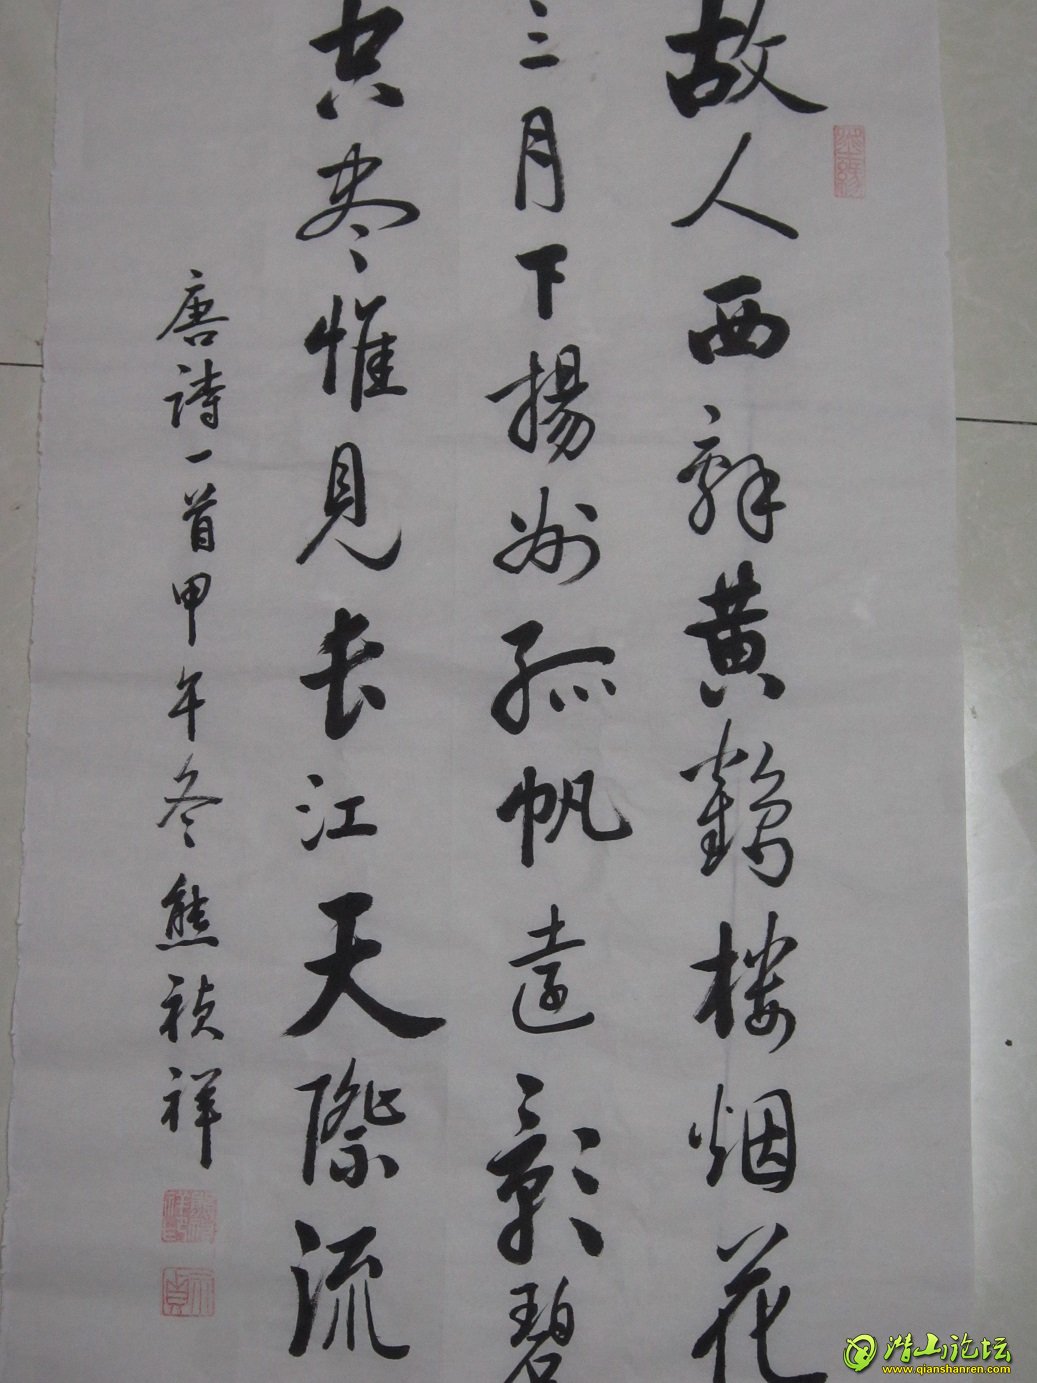 故人西辞黄鹤楼烟花
三月下揚州孤帆遠影碧
空尽惟見长江天際流
唐诗一首甲午冬熊祯祥
潜山论坛
www.qianshanren.com